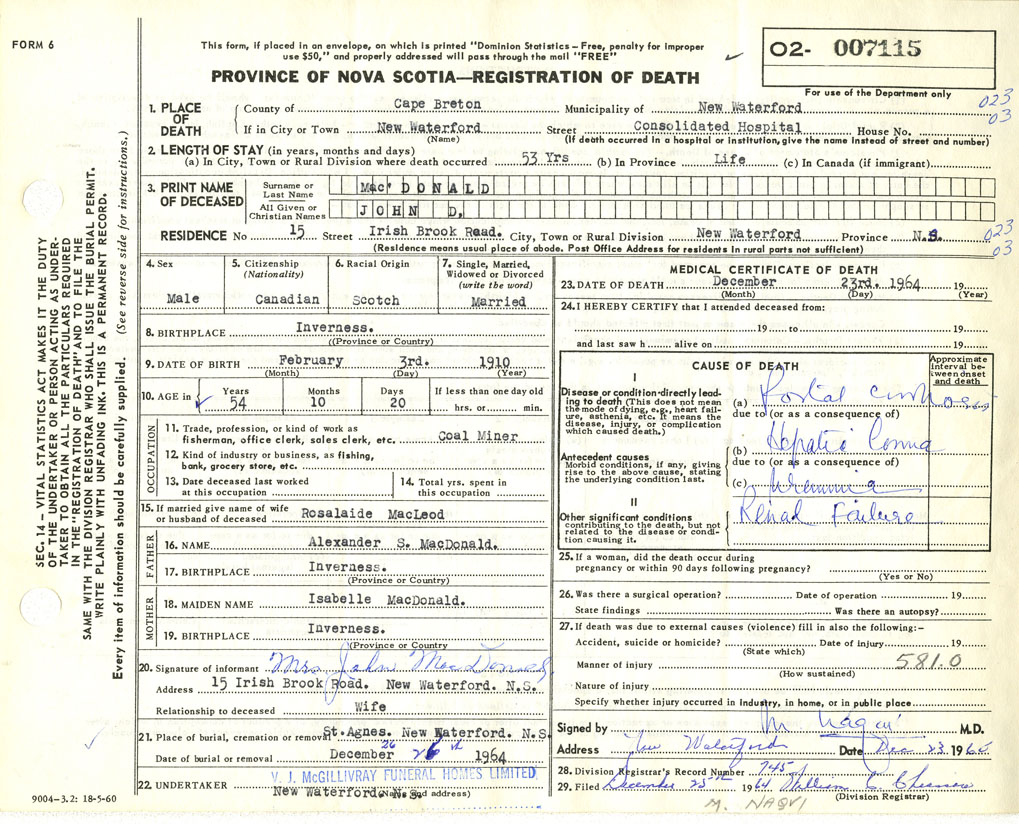 FORM 6
This form, if placed in an envelope, on which is printed "Dominion Statistics – Free, penalty for improper
use $50," and properly addressed will pass through the mail "FREE"
PROVINCE OF NOVA SCOTIA—REGISTRATION OF DEATH
O2- 007115
For use of the Department only
023
03
1. PLACE OF DEATH
County of Cape Breton Municipality of New Waterford
If in City or Town New Waterford Street Consolidated Hospital House No.
(Name) (If death occurred in a hospital or institution, give the name instead of street and number)
2. LENGTH OF STAY (in years, months and days)
(a) In City, Town or Rural Division where death occurred 53 Yrs (b) In Province Life (c) In Canada (if immigrant)
3. PRINT NAME OF DECEASED
Surname or Last Name Mac'DONALD
All Given or Christian Names JOHN D.
RESIDENCE No 15 Street Irish Brook Road. City, Town or Rural Division New Waterford Province N.S.
(Residence means usual place of abode. Post Office Address for residents in rural parts not sufficient)
023
03
4. Sex
Male
5. Citizenship
(Nationality)
Canadian
6. Racial Origin
Scotch
7. Single, Married,
Widowed or Divorced
(write the word)
Married
8. BIRTHPLACE Inverness.
((Province or Country)
9. DATE OF BIRTH February 3rd. 1910
(Month) (Day) (Year)
10. AGE in
Years Months Days If less than one day old
54 10 20 hrs. or min.
OCCUPATION
11. Trade, profession, or kind of work as
fisherman, office clerk, sales clerk, etc. Coal Miner
12. Kind of industry or business, as fishing,
bank, grocery store, etc.
13. Date deceased last worked
at this occupation
14. Total yrs. spent in
this occupation
15. If married give name of wife
or husband of deceased Rosalaide MacLeod
FATHER
16. NAME Alexander S. MacDonald.
17. BIRTHPLACE Inverness.
(Province or Country)
MOTHER
18. MAIDEN NAME Isabelle MacDonald.
19. BIRTHPLACE Inverness.
(Province or Country
20. Signature of informant Mrs John MacDonald
Address 15 Irish Brook Road. New Waterford. N.S.
Relationship to deceased Wife
21. Place of burial, cremation or removal St. Agnes. New Waterford. N.S.
26
Date of burial or removal December 26 1964
V. J. McGILLIVRAY FUNERAL HOMES LIMITED
22. UNDERTAKER New Waterford. N.S.
(Name and address)
9004–3.2: 18-5-60
MEDICAL CERTIFICATE OF DEATH
23. DATE OF DEATH December 23rd. 1964 19
(Month) (Day) (Year)
24. I HEREBY CERTIFY that I attended deceased from:
19 to 19
and last saw h alive on 19
CAUSE OF DEATH
Approximate
interval be-
tween onset
and death
I
Disease or condition directly lead-
ing to death (This does not mean
the mode of dying, e.g., heart fail-
ure, asthenia, etc. It means the
disease, injury, or complication
which caused death.)
(a) Portal cirrhosis
due to (or as a consequence of)
Antecedent causes
Morbid conditions, if any, giving
rise to the above cause, stating
the underlying condition last.
(b) Hepatic Coma
due to (or as a consequence of)
(c) Uremia
II
Other significant conditions
contributing to the death, but not
related to the disease or condi-
tion causing it.
Renal Failure
25. If a woman, did the death occur during
pregnancy or within 90 days following pregnancy?
(Yes or No)
26. Was there a surgical operation? Date of operation 19
State findings Was there an autopsy?
27. If death was due to external causes (violence) fill in also the following:–
Accident, suicide or homicide? Date of injury 19
(State which)
Manner of injury 581.0
(How sustained)
Nature of injury
Specify whether injury occurred in industry, in home, or in public place
Signed by M. Naqvi M.D.
Address New Waterford Date Dec 23 1964
28. Division Registrar's Record Number 745
29. Filed December 25th 1964 William
(Division Registrar)
M. NAQVI
SEC. 14 – VITAL STATISTICS ACT MAKES IT THE DUTY
OF THE UNDERTAKER OR PERSON ACTING AS UNDER-
TAKER TO OBTAIN ALL THE PARTICULARS REQUIRED
IN THE "REGISTRATION OF DEATH" AND TO FILE THE
SAME WITH THE DIVISION REGISTRAR WHO SHALL ISSUE THE BURIAL PERMIT.
WRITE PLAINLY WITH UNFADING INK. THIS IS A PERMANENT RECORD.
Every item of information should be carefully supplied. (See reverse side for instructions.)